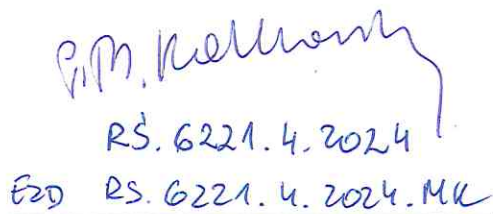 RŚ. 6221.4.2024
EZD RS. 6221.4.2024.MK